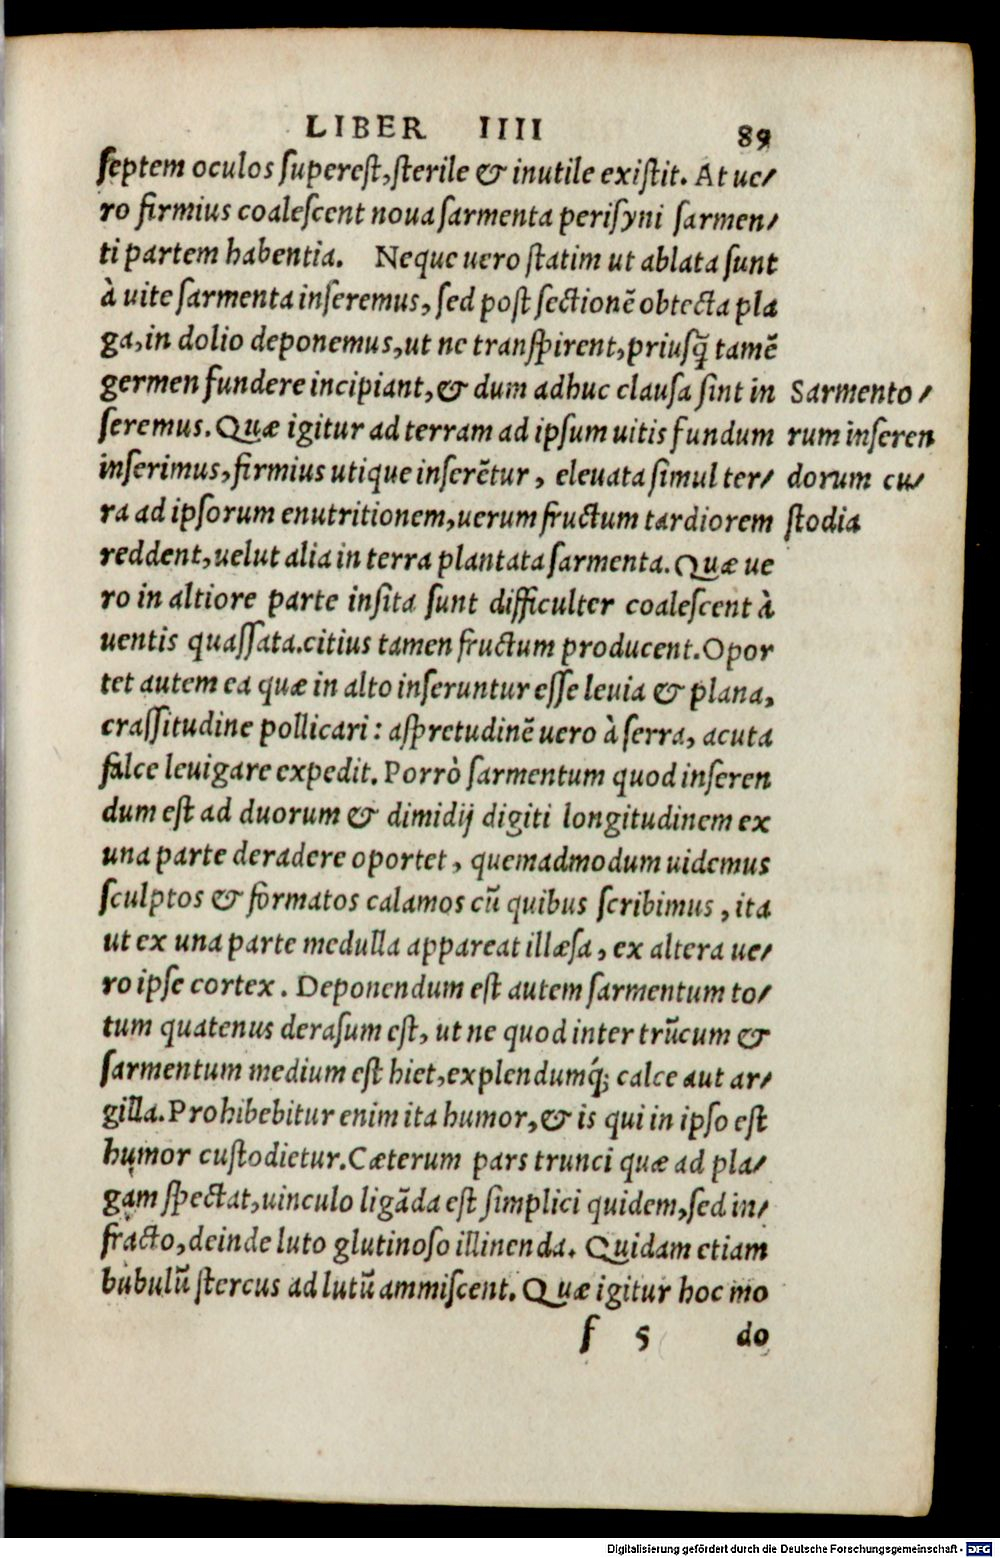 LIBER IIII 89
septem oculos superest, sterile & inutile existit. At ue/
ro firmius coalescent noua sarmenta perisyni sarmen/
ti partem habentia. Neque uero statim ut ablata sunt
à uite sarmenta inseremus, sed post sectionẽ obtecta pla
ga, in dolio deponemus, ut ne transpirent, priusq̃ tamẽ
germen fundere incipiant, & dum adhuc clausa sint in
seremus. Quæ igitur ad terram ad ipsum uitis fundum
inserimus, firmius utique inserẽtur, eleuata simul ter/
ra ad ipsorum enutritionem, uerum fructum tardiorem
reddent, uelut alia in terra plantata sarmenta. Quæ ue
ro in altiore parte insita sunt difficulter coalescent à
uentis quassata. citius tamen fructum producent. Opor
tet autem ea quæ in alto inseruntur esse leuia & plana,
crassitudine pollicari: aspretudinẽ uero à serra, acuta
falce leuigare expedit. Porrò sarmentum quod inseren
dum est ad duorum & dimidij digiti longitudinem ex
una parte deradere oportet, quemadmodum uidemus
sculptos & formatos calamos cũ quibus scribimus, ita
ut ex una parte medulla appareat illæsa, ex altera ue/
ro ipse cortex. Deponendum est autem sarmentum to/
tum quatenus derasum est, ut ne quod inter trũcum &
sarmentum medium est hiet, explendumq́; calce aut ar/
gilla. Prohibebitur enim ita humor, & is qui in ipso est
humor custodietur. Cæterum pars trunci quæ ad pla/
gam spectat, uinculo ligãda est simplici quidem, sed in/
fracto, deinde luto glutinoso illinenda. Quidam etiam
bubulũ stercus ad lutũ ammiscent. Quæ igitur hoc mo
f 5 do
Sarmento/
rum inseren
dorum cu/
stodia
Digitalisierung gefördert durch die Deutsche Forschungsgemeinschaft - DFG